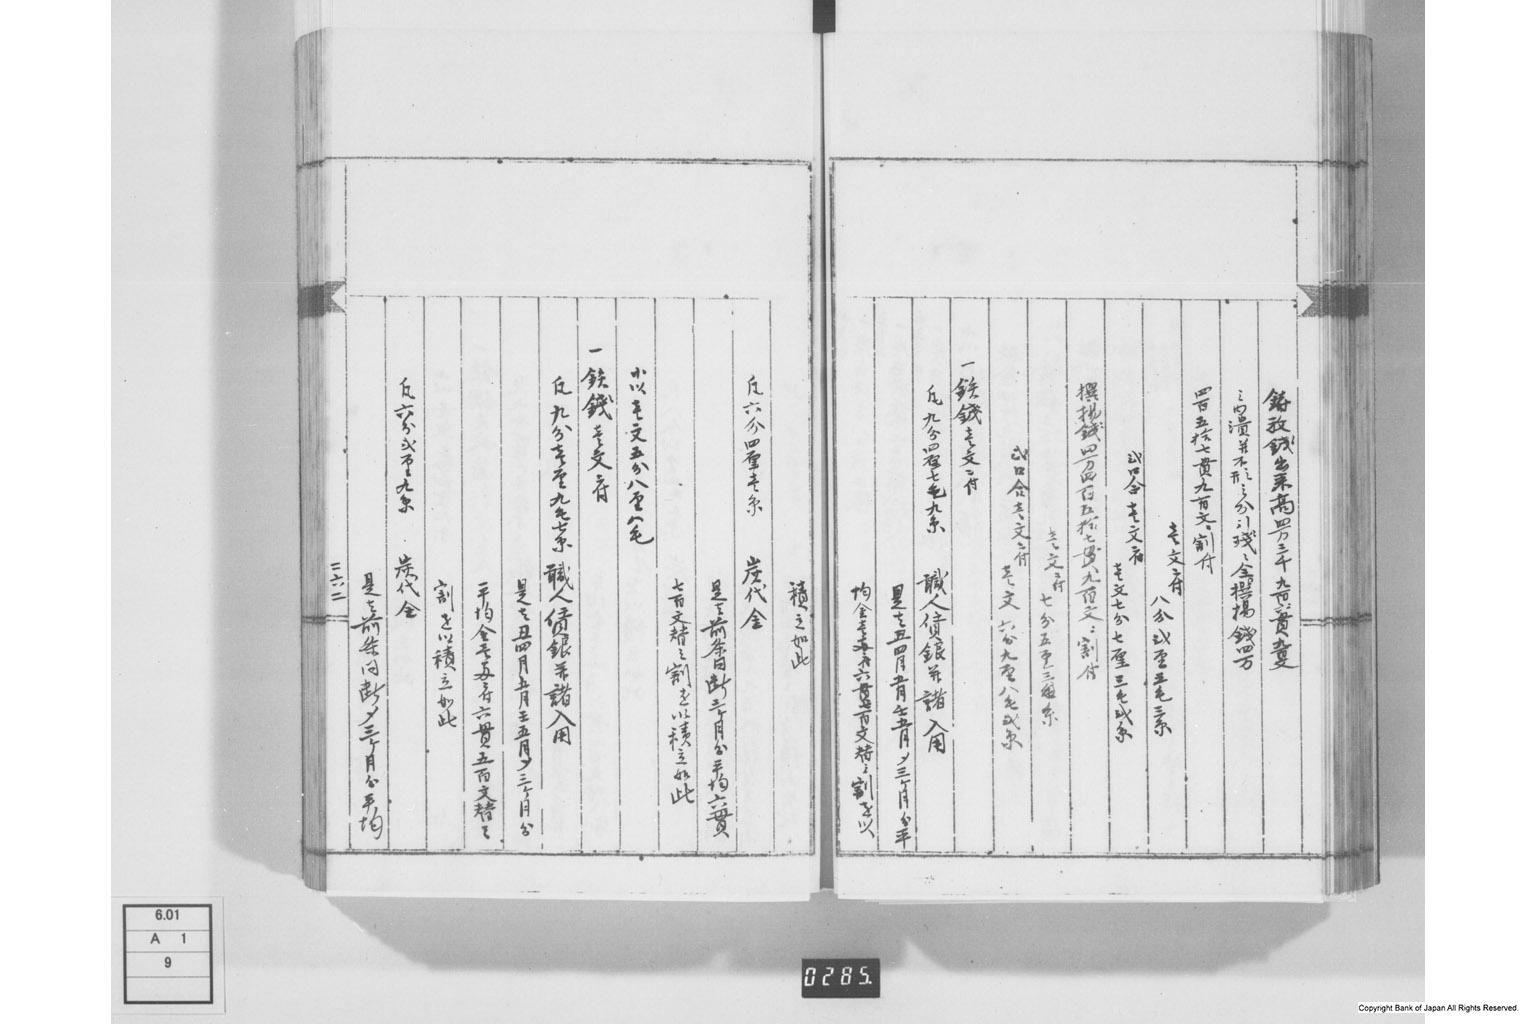 鋳放銭出来高四万三千九百貫
之内潰并不形之分引残全撰揚銭四万
四百五拾七貫九百文ニ割付
壱文ニ付 八分弐厘五毛三糸
弐口合壱文ニ付 壱文七分七厘三毛弐糸
撰揚銭四万四百五拾七貫九百文ニ割付
壱文ニ付 七分五厘三毛糸
弐口合壱文ニ付 壱文六分九厘八毛弐糸
一鉄銭壱文ニ付
凡九分四厘七毛九糸 職人賃銀并諸入用
是者丑四月五月壬五月〆三ヶ月分平
均金壱両ニ付六貫五百文替之割を以
積立如此
凡六分四厘壱糸 炭代金
是者前条同断三ヶ月分平均六貫
七百文替之割を以積立如此
小以壱文五分八厘八毛
一鉄銭壱文ニ付
凡九分壱厘九毛七糸 職人賃銀并諸入用
是者丑四月五月壬五月〆三ヶ月分
平均金壱両ニ付六貫五百文替之
割を以積立如此
凡六分弐厘九糸 炭代金
是者前条同断〆三ヶ月分平均
二六二
6.01
A 1
9
0285.
Copyright Bank of Japan All Rights Reserved.